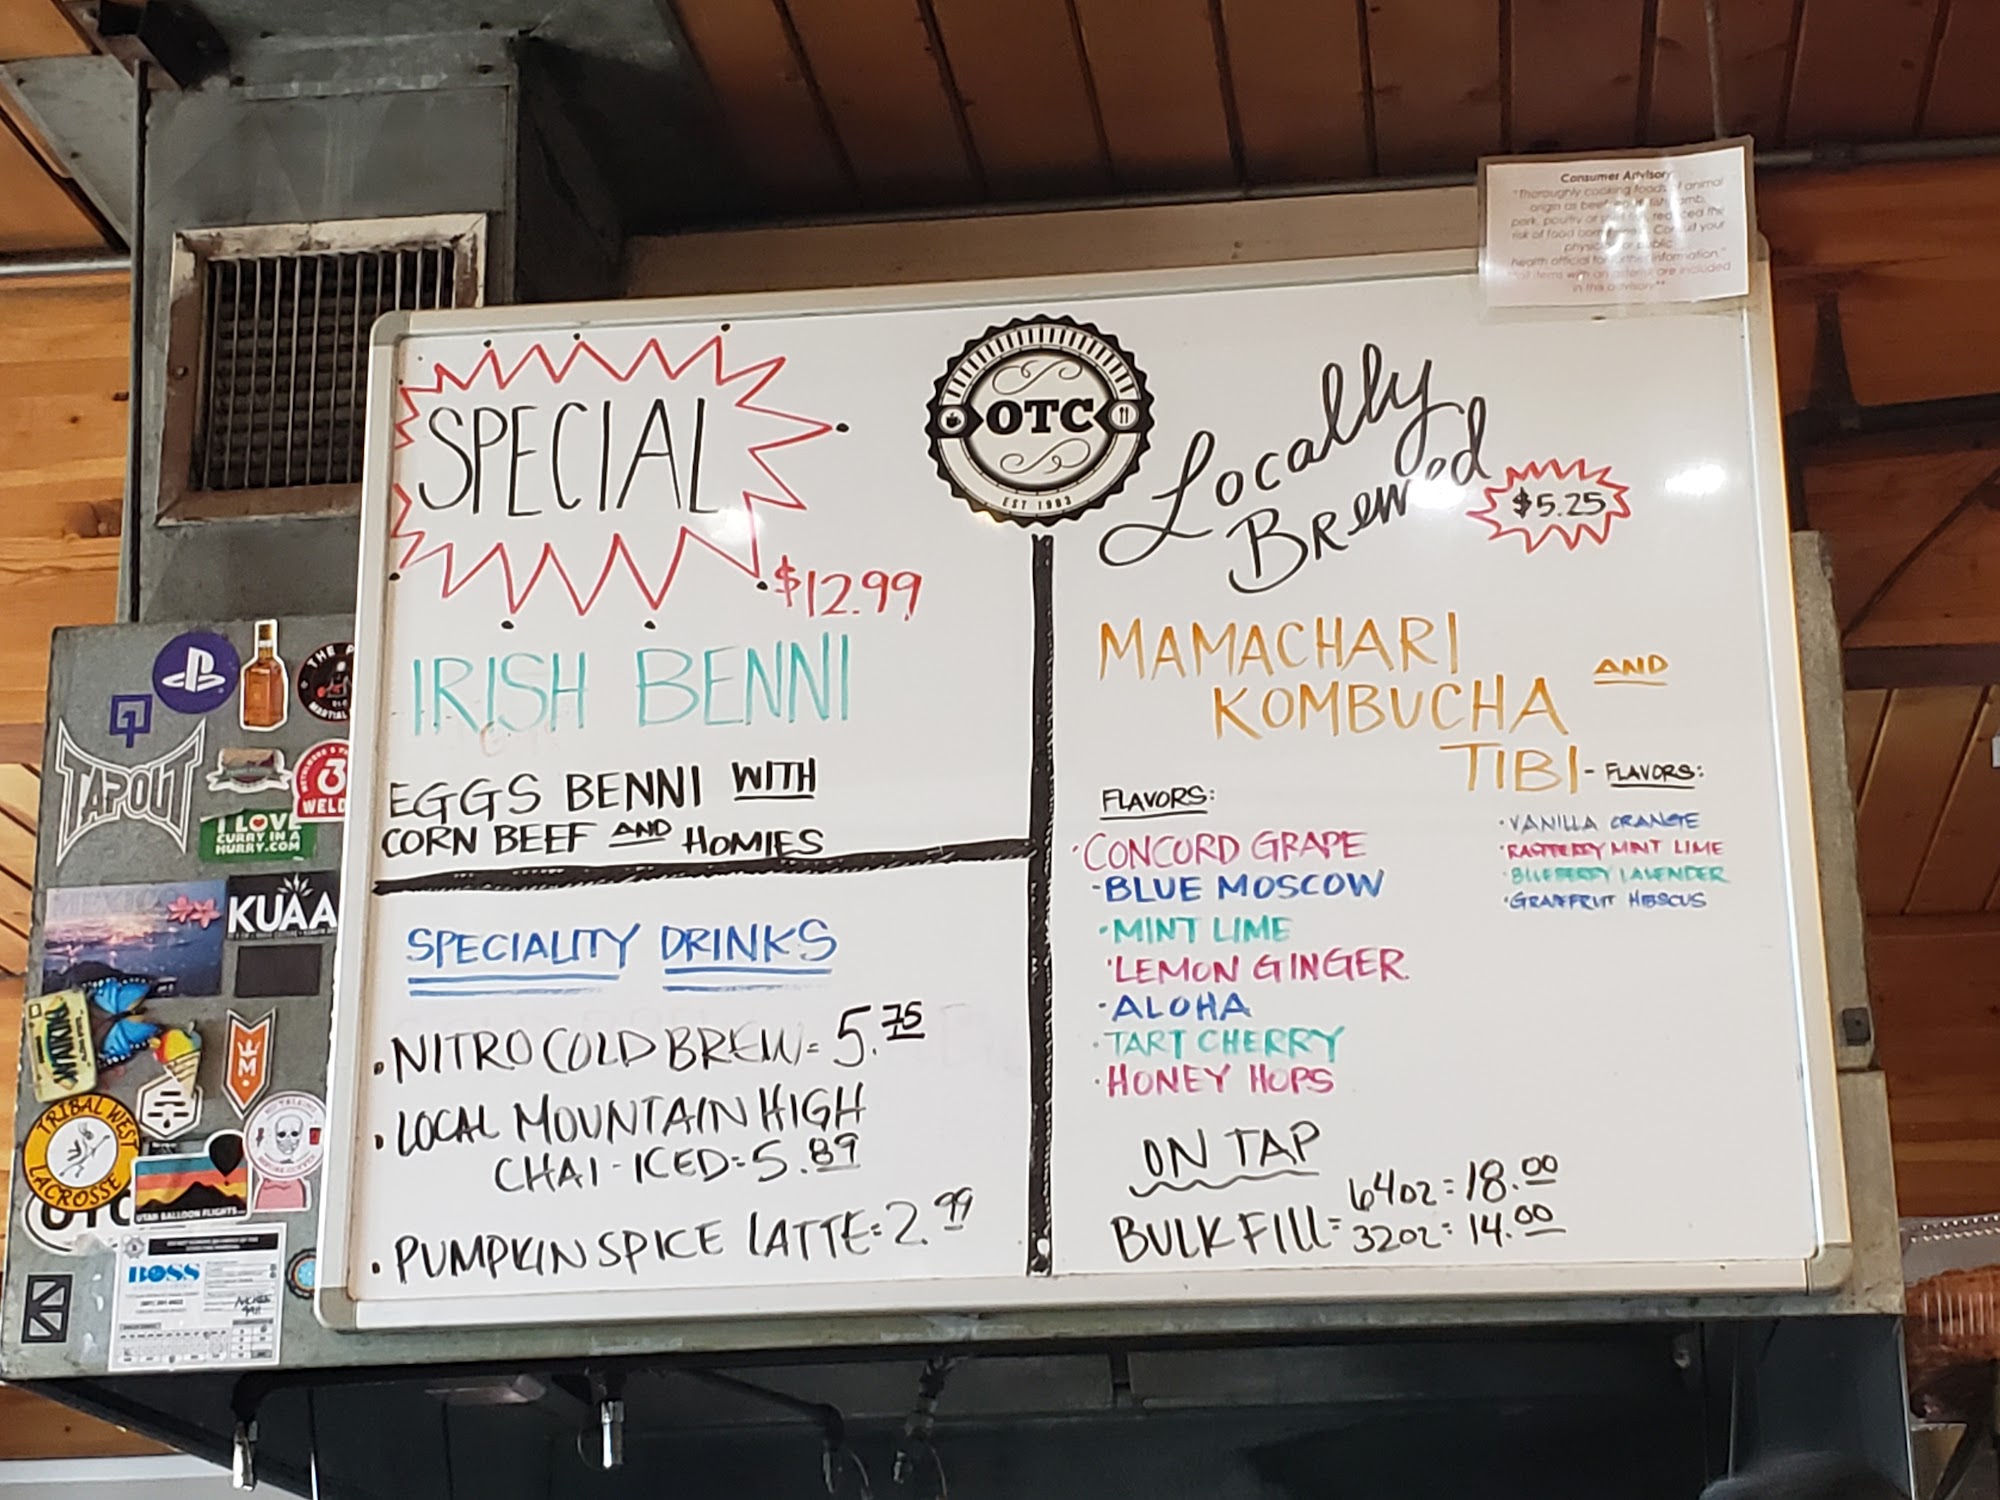 Consumer Advisory
"Thoroughly cooking foods of animal
origin as beef,
pork, poultry or reduced the
risk of food Consult your
physician or public
health official for further information."
in this advisory**
SPECIAL
$12.99
IRISH BENNI
EGGS BENNI WITH
CORN BEEF AND HOMIES
SPECIALITY DRINKS
• NITRO COLD BREW = 5.75
• LOCAL MOUNTAIN HIGH
CHAI - ICED = 5.89
• PUMPKIN SPICE LATTE = 2.99
OTC
EST 1983
Locally
Brewed
$5.25
MAMACHARI
KOMBUCHA AND
TIBI - FLAVORS:
FLAVORS:
• CONCORD GRAPE
- BLUE MOSCOW
• MINT LIME
• LEMON GINGER
- ALOHA
• TART CHERRY
• HONEY HOPS
• VANILLA ORANGE
• RASPBERRY MINT LIME
• BLUEBERRY LAVENDER
• GRAPEFRUIT HIBISCUS
ON TAP
BULK FILL = 64oz = 18.00
32oz = 14.00
THE
MARTIAL
TAPOUT
3
WELD
I LOVE
CURRY IN A
HURRY.COM
MEXICO
KUAA
M
TRIBAL WEST
LACROSSE
OTC
UTAH BALLOON FLIGHTS
BOSS